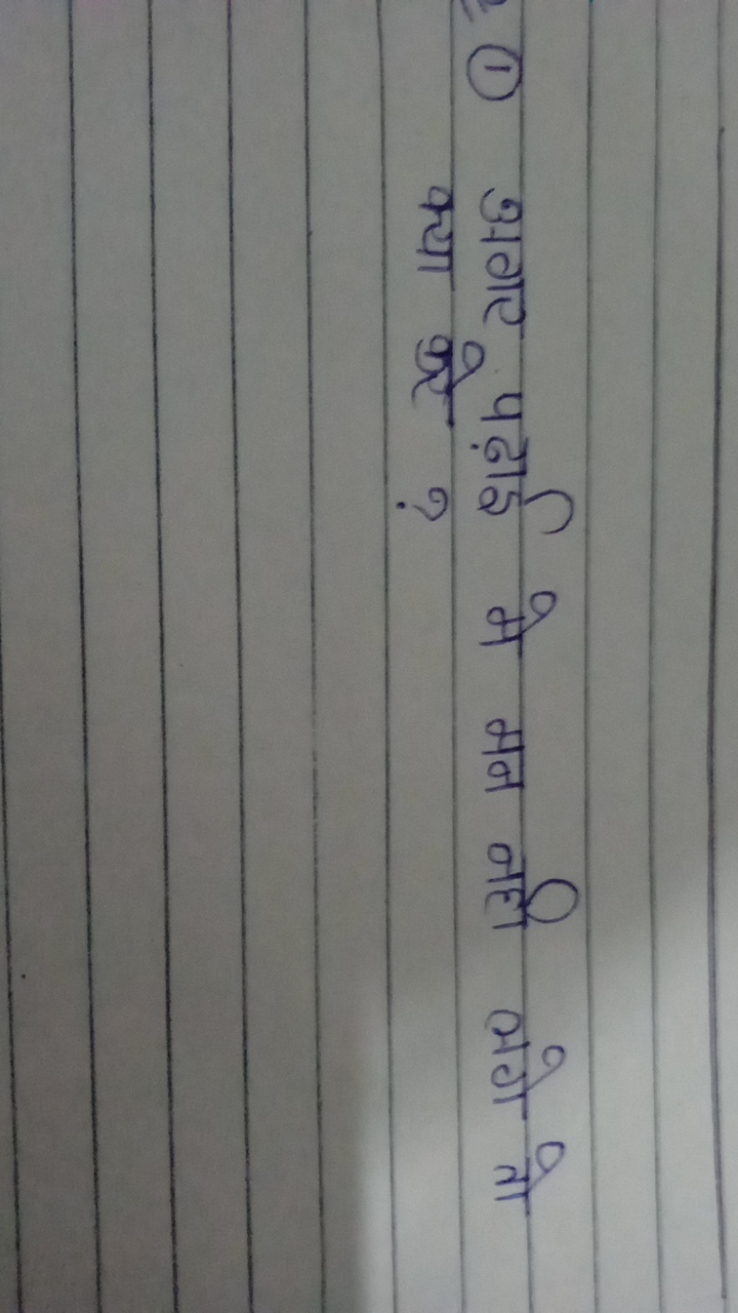 ① अगर पढ़ाई मे मन नही लगे तो
क्या करे ?